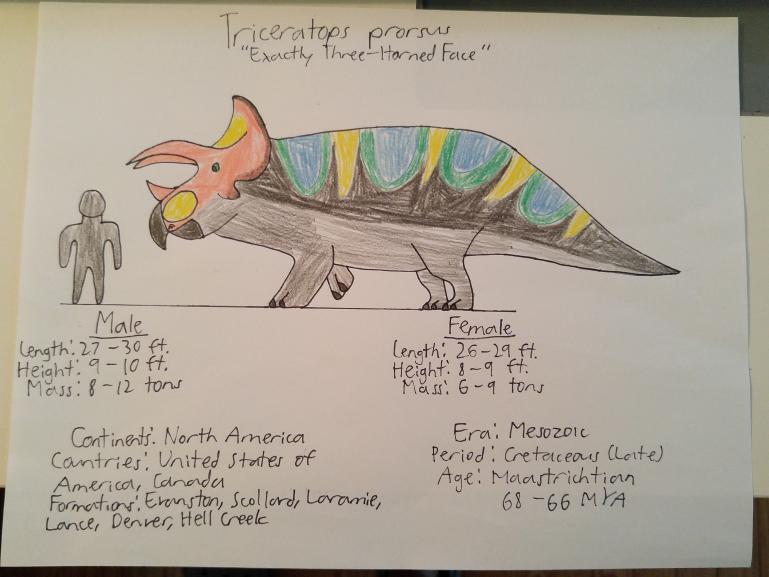 Triceratops prorsus
"Exactly Three-Horned Face"
Male
Length: 27-30 ft.
Height: 9-10 ft.
Mass: 8-12 tons
Female
Length: 26-29 ft.
Height: 8-9 ft.
Mass: 6-9 tons
Continents: North America
Countries: United States of
America, Canada
Formations: Evanston, Scollard, Laramie,
Lance, Denver, Hell Creek
Era: Mesozoic
Period: Cretaceous (Late)
Age: Maastrichtian
68-66 MYA